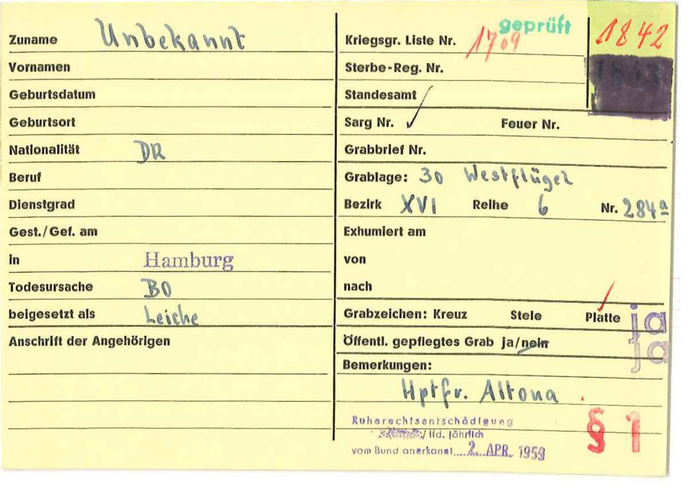 Zuname Unbekannt
Vornamen
Geburtsdatum
Geburtsort
Nationalität DR
Beruf
Dienstgrad
Gest./Gef. am
in Hamburg
Todesursache BO
beigesetzt als Leiche
Anschrift der Angehörigen
geprüft
Kriegsgr. Liste Nr. 1709
1842
Sterbe-Reg. Nr.
Standesamt
Sarg Nr. ✓ Feuer Nr.
Grabbrief Nr.
Grablage: 30 Westflügel
Bezirk XVI Reihe 6 Nr. 284a
Exhumiert am
von
nach
Grabzeichen: Kreuz Stele Platte ja
Öffentl. gepflegtes Grab ja/nein ja
Bemerkungen:
Hptfr. Altona
Ruherechtsentschädigung
/ lfd. jährlich
vom Bund anerkannt 2. APR. 1959
§ 1